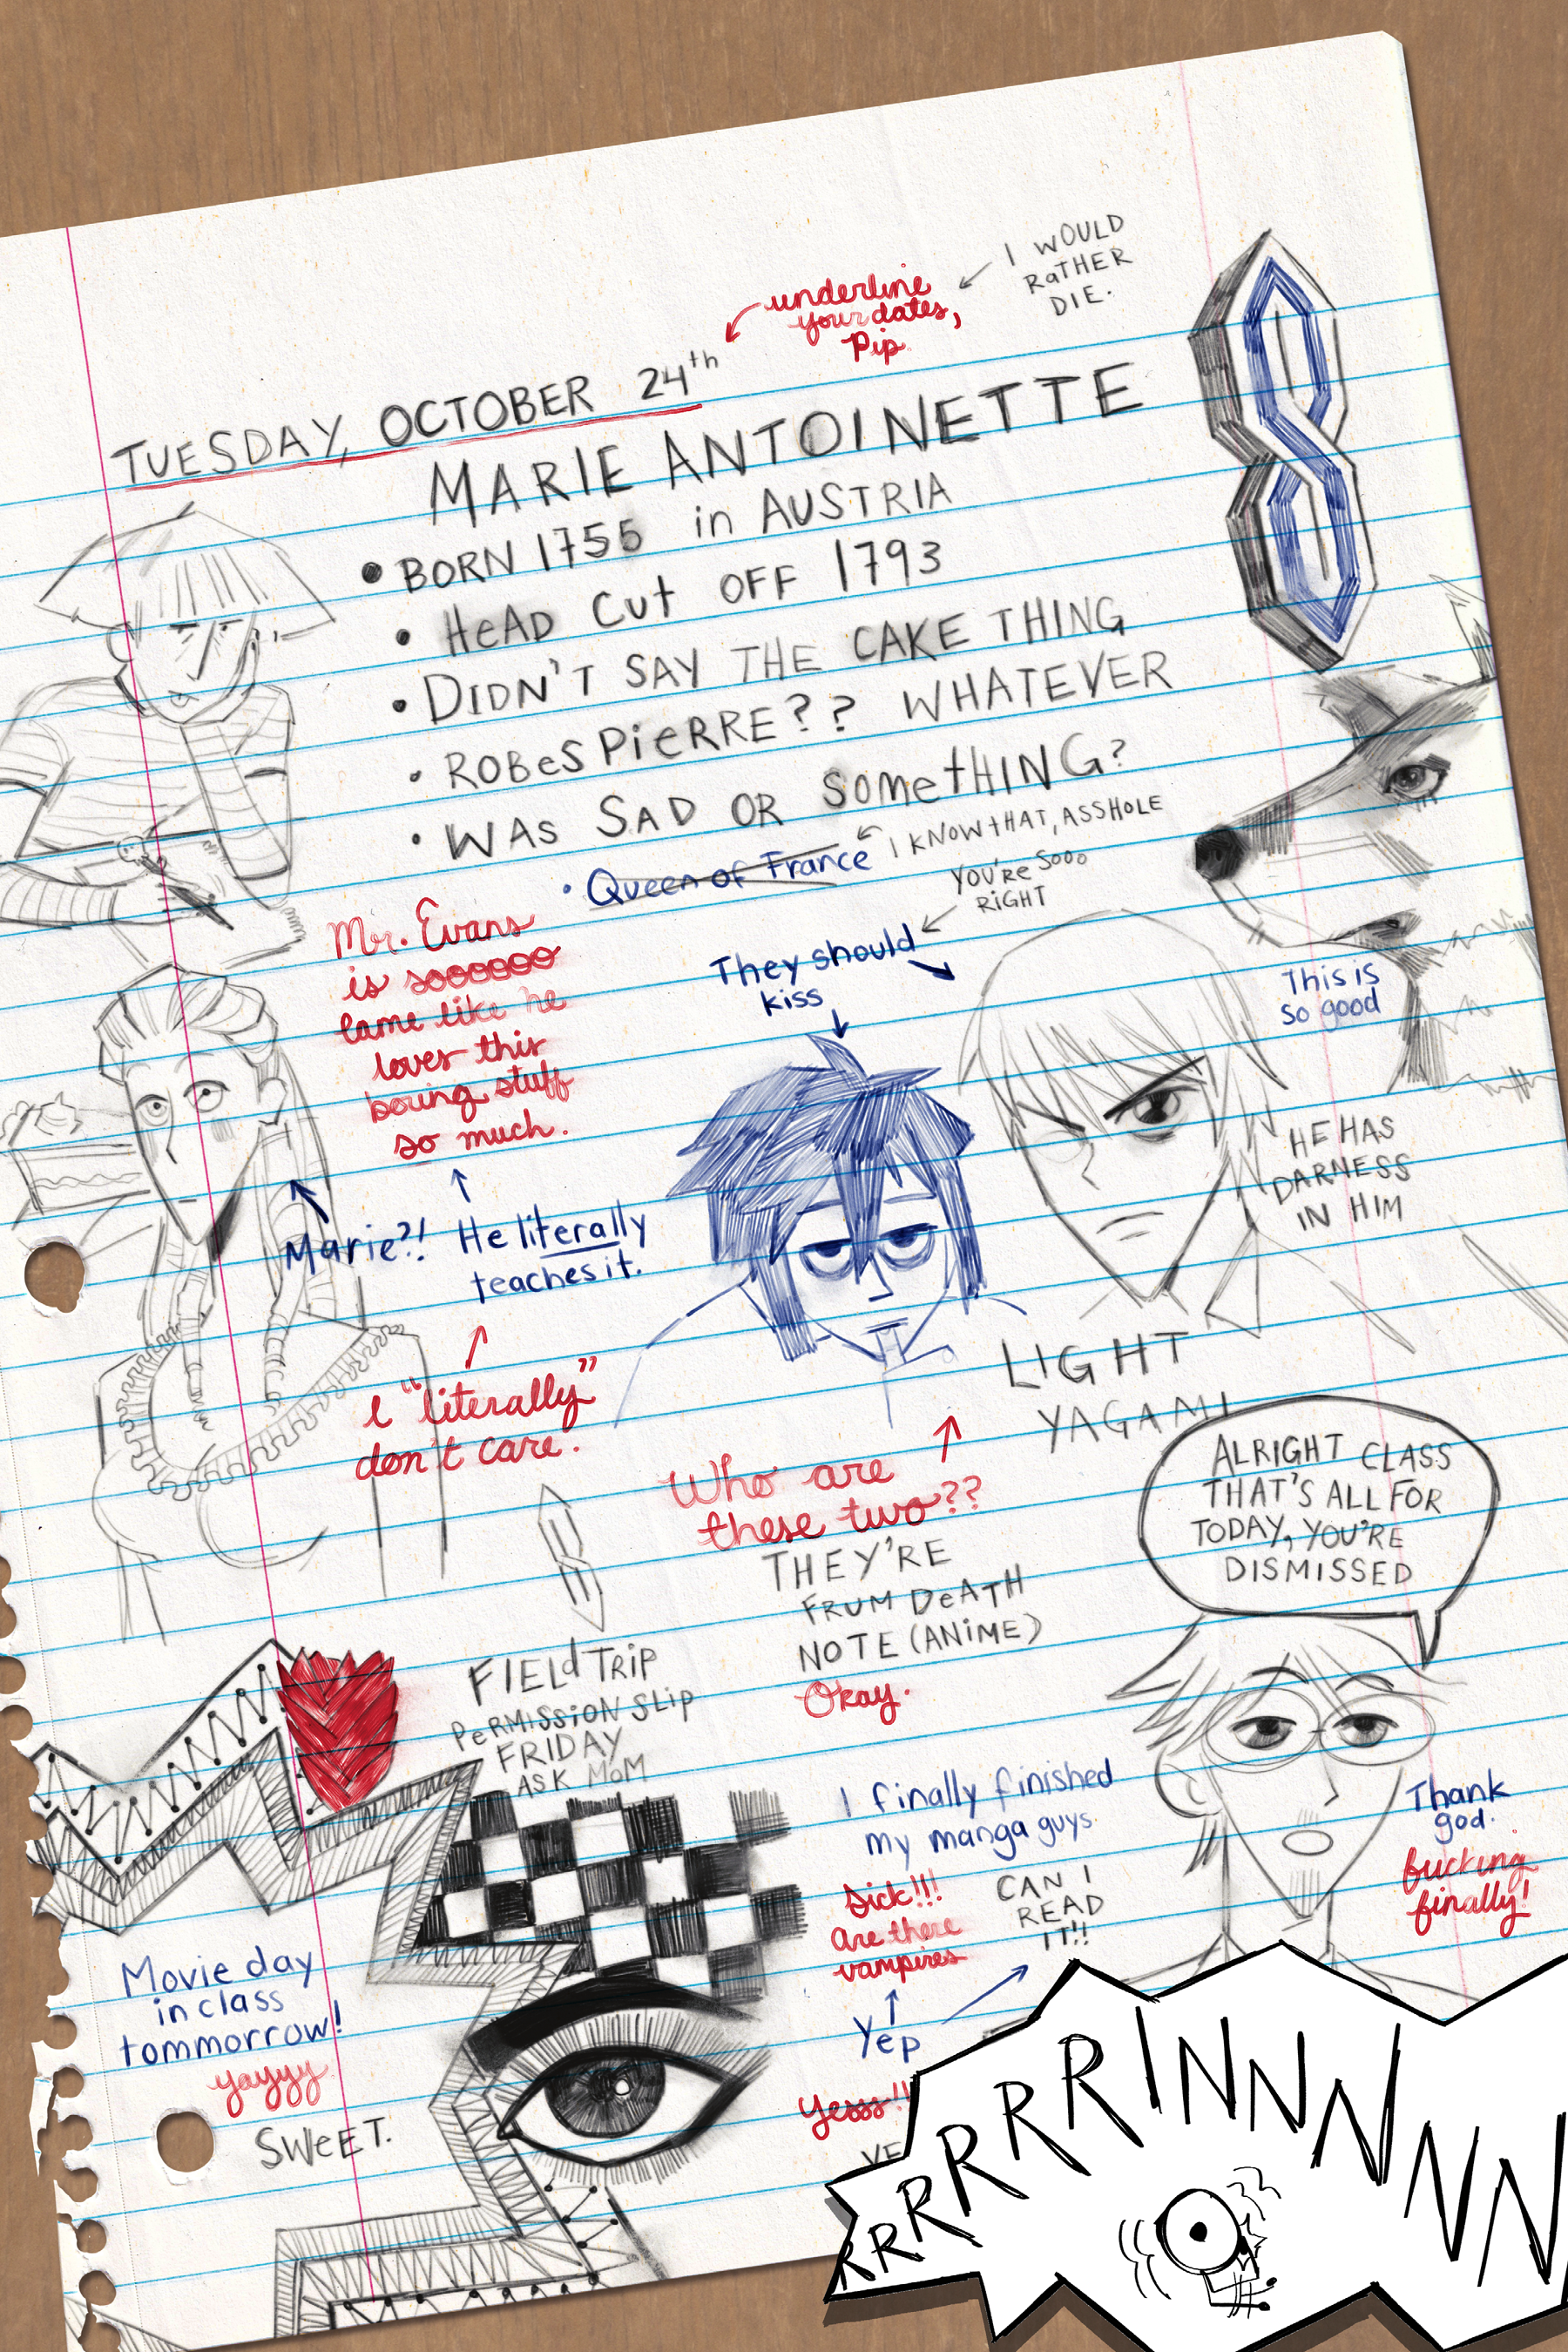 I WOULD
RaTHER
DIE.
underline
your dates,
Pip.
TUESDAY, OCTOBER 24th
MARIE ANTOINETTE
• BORN 1755 in AUSTRIA
• HeAD Cut OFF 1793
• DIDN'T SAY THE CAKE THING
• ROBesPieRRE?? WHATEVER
• WAS SAD OR SomethING?
• Queen of France
I KNOW tHAT, ASSHOLE
YOU'Re Sooo
RiGHT
They should
kiss
This is
so good
Mr. Evans
is soooooo
lame like he
loves this
boring stuff
so much.
HE HAS
DARNESS
IN HIM
Marie?!
He literally
teaches it.
I "literally"
don't care.
LIGHT
YAGAMI
Who are
these two??
THEY'RE
FRUM DeATH
NOTE (ANiME)
Okay.
ALRIGHT CLASS
THAT'S ALL FOR
TODAY, YOU'RE
DISMISSED
FIELd TRiP
PeRMISSiON SLiP
FRIDAY
ASK MoM
I finally finished
my manga guys.
Sick!!!
Are there
vampires
CAN I
READ
IT!!
Yep
Yesss!!
VE
Thank
god.
fucking
finally!
Movie day
in class
tommorrow!
yayyy
SWeET.
RRRRRRRINNNNNN